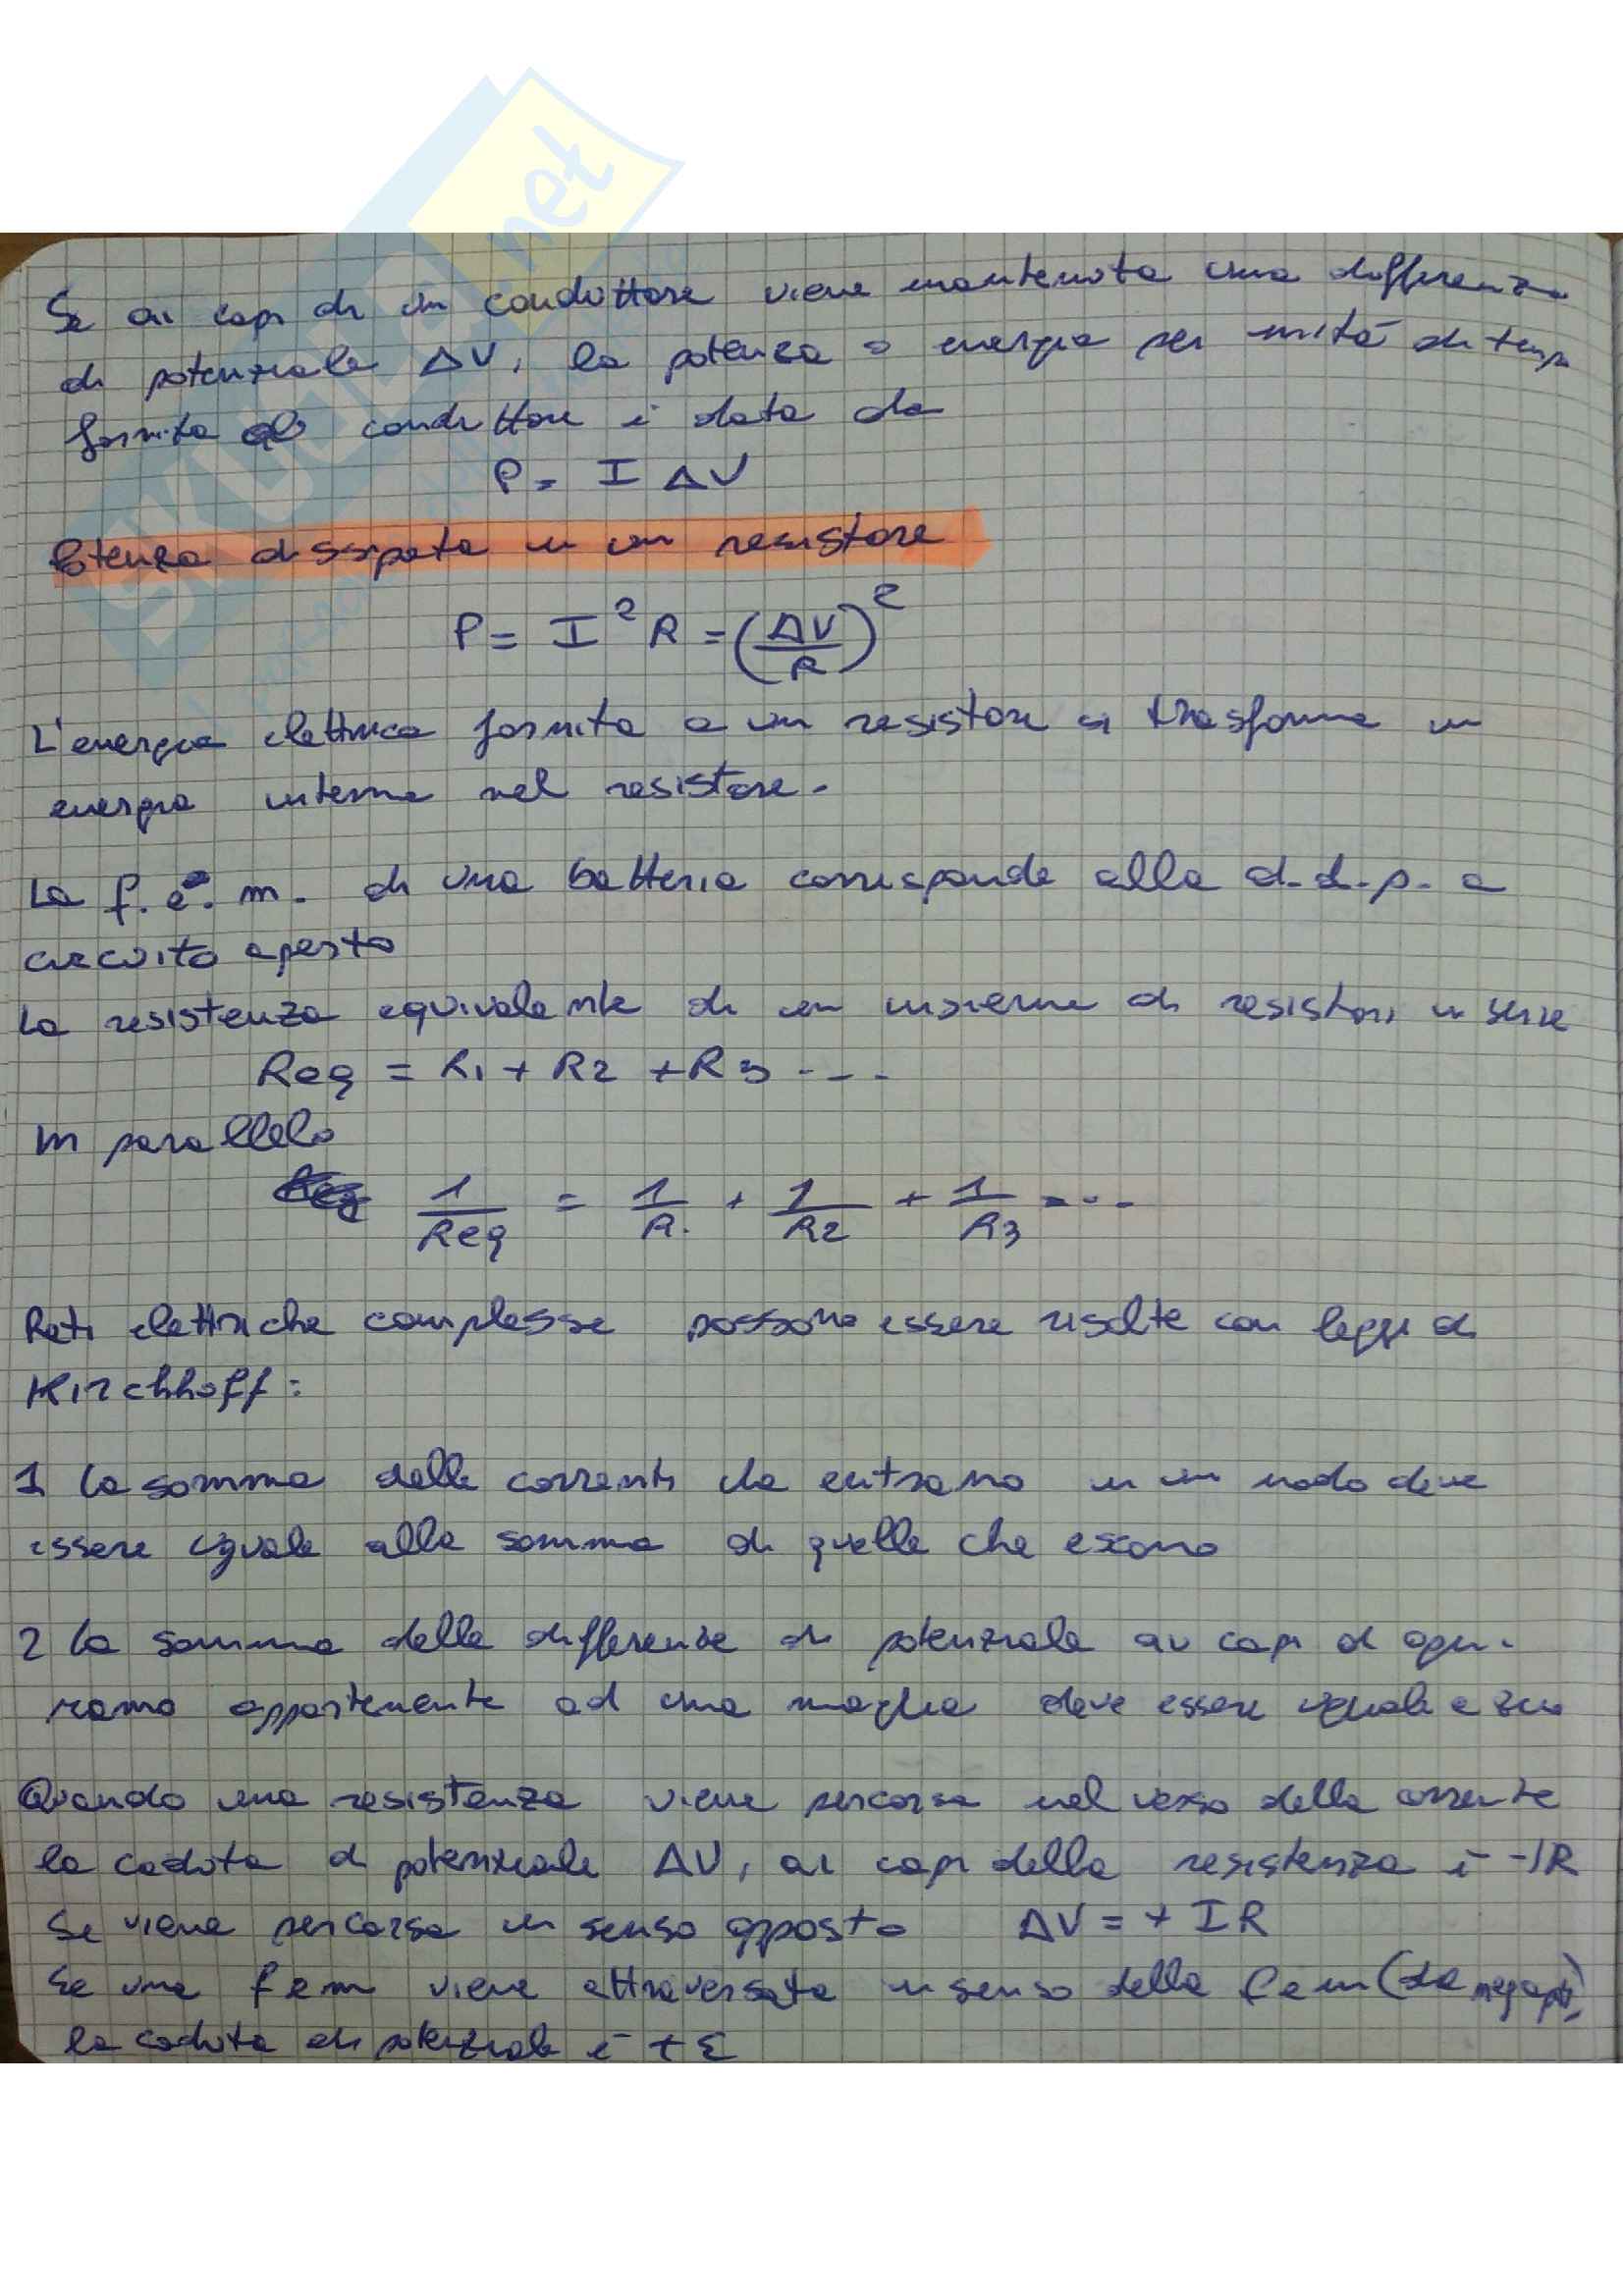 SKUOLA.net
Se ai capi di un conduttore viene mantenuta una differenza
di potenziale ΔV, la potenza o energia per unità di tempo
fornita al conduttore è data da
P = I ΔV
Potenza dissipata in un resistore
P = I² R = (ΔV/R)²
L'energia elettrica fornita a un resistore si trasforma in
energia interna nel resistore.
La f.e.m. di una batteria corrisponde alla d.d.p. a
circuito aperto
La resistenza equivalente di un insieme di resistori in serie
Req = R1 + R2 + R3 ...
in parallelo
1/Req = 1/R1 + 1/R2 + 1/R3 ...
Reti elettriche complesse possono essere risolte con leggi di
Kirchhoff:
1 La somma delle correnti che entrano in un nodo deve
essere uguale alla somma di quelle che escono
2 La somma delle differenze di potenziale ai capi di ogni
ramo appartenente ad una maglia deve essere uguale a zero
Quando una resistenza viene percorsa nel verso della corrente
la caduta di potenziale ΔV, ai capi della resistenza è -IR
Se viene percorsa in senso opposto ΔV = + IR
Se una fem viene attraversata in senso della fem (da neg a pos)
la caduta di potenziale è + ε